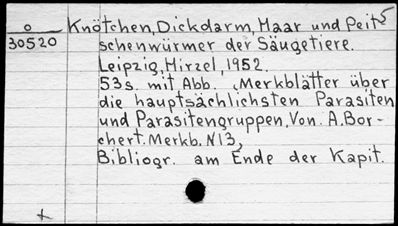 o Knötchen, Dickdarm, Haar und Peit 5
30520 schenwürmer der Säugetiere.
Leipzig, Hirzel, 1952.
53s. mit Abb. „Merkblätter über
die hauptsächlichsten Parasiten
und Parasitengruppen, Von. A. Bor-
chert. Merkb. N13,
Bibliogr. am Ende der Kapit.
+